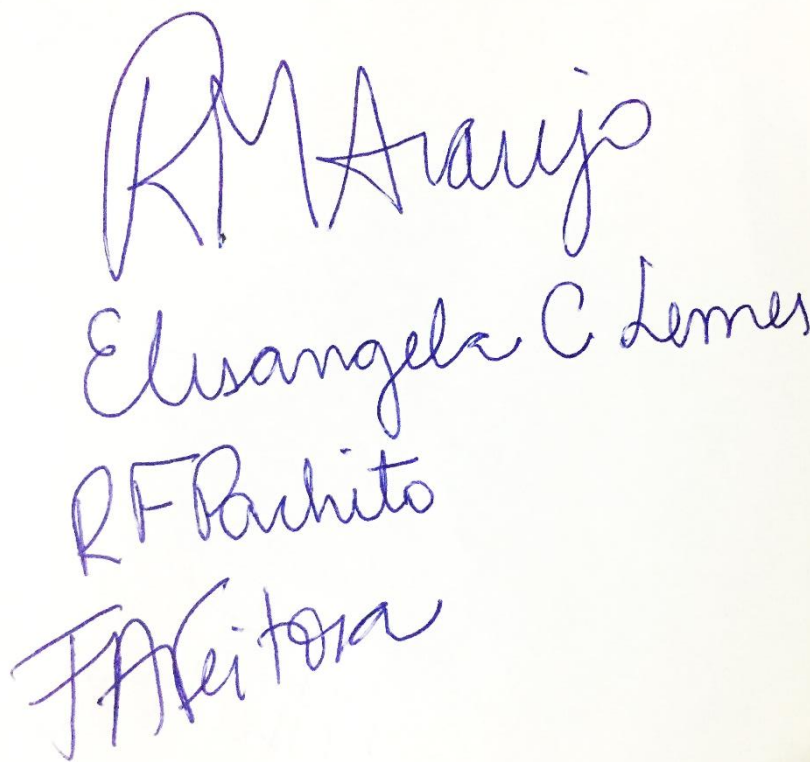 RM Araujo
Elisangela C Lemes
R F Pachito
F A Feitosa